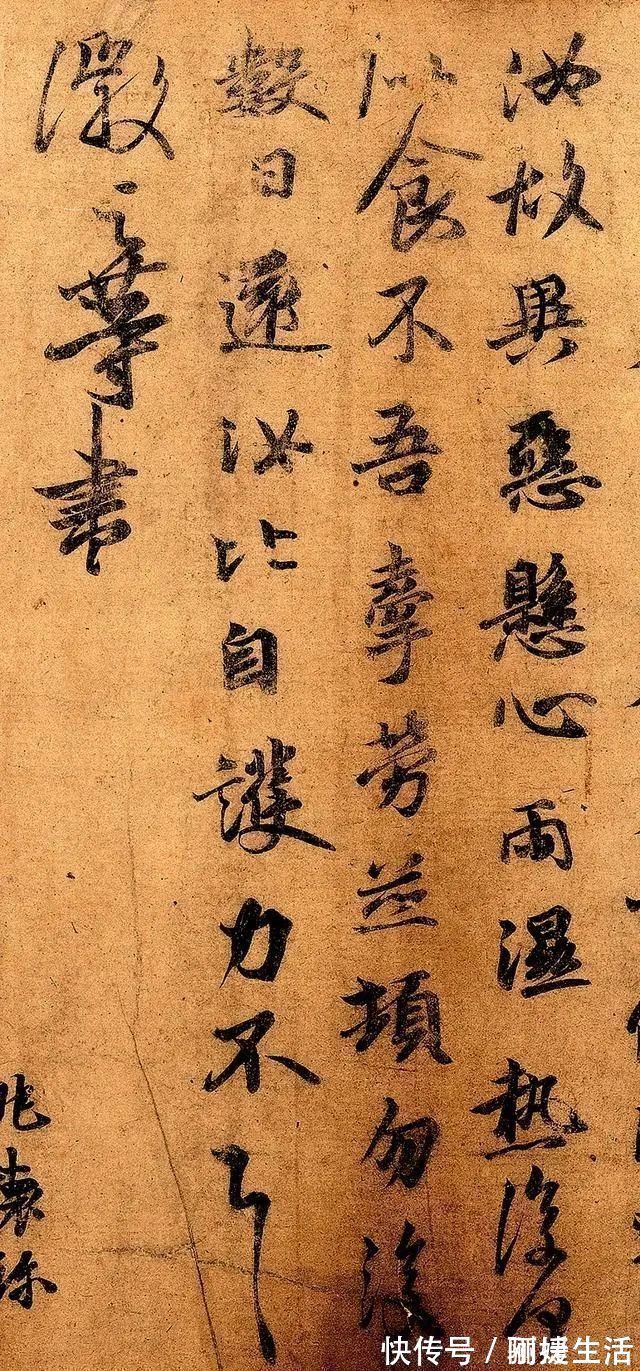 汝故異惡懸心雨濕熱復何
似食不吾牽勞並頓勿復
數日還汝比自護力不具
徽之等書
快传号 / 骊婕生活